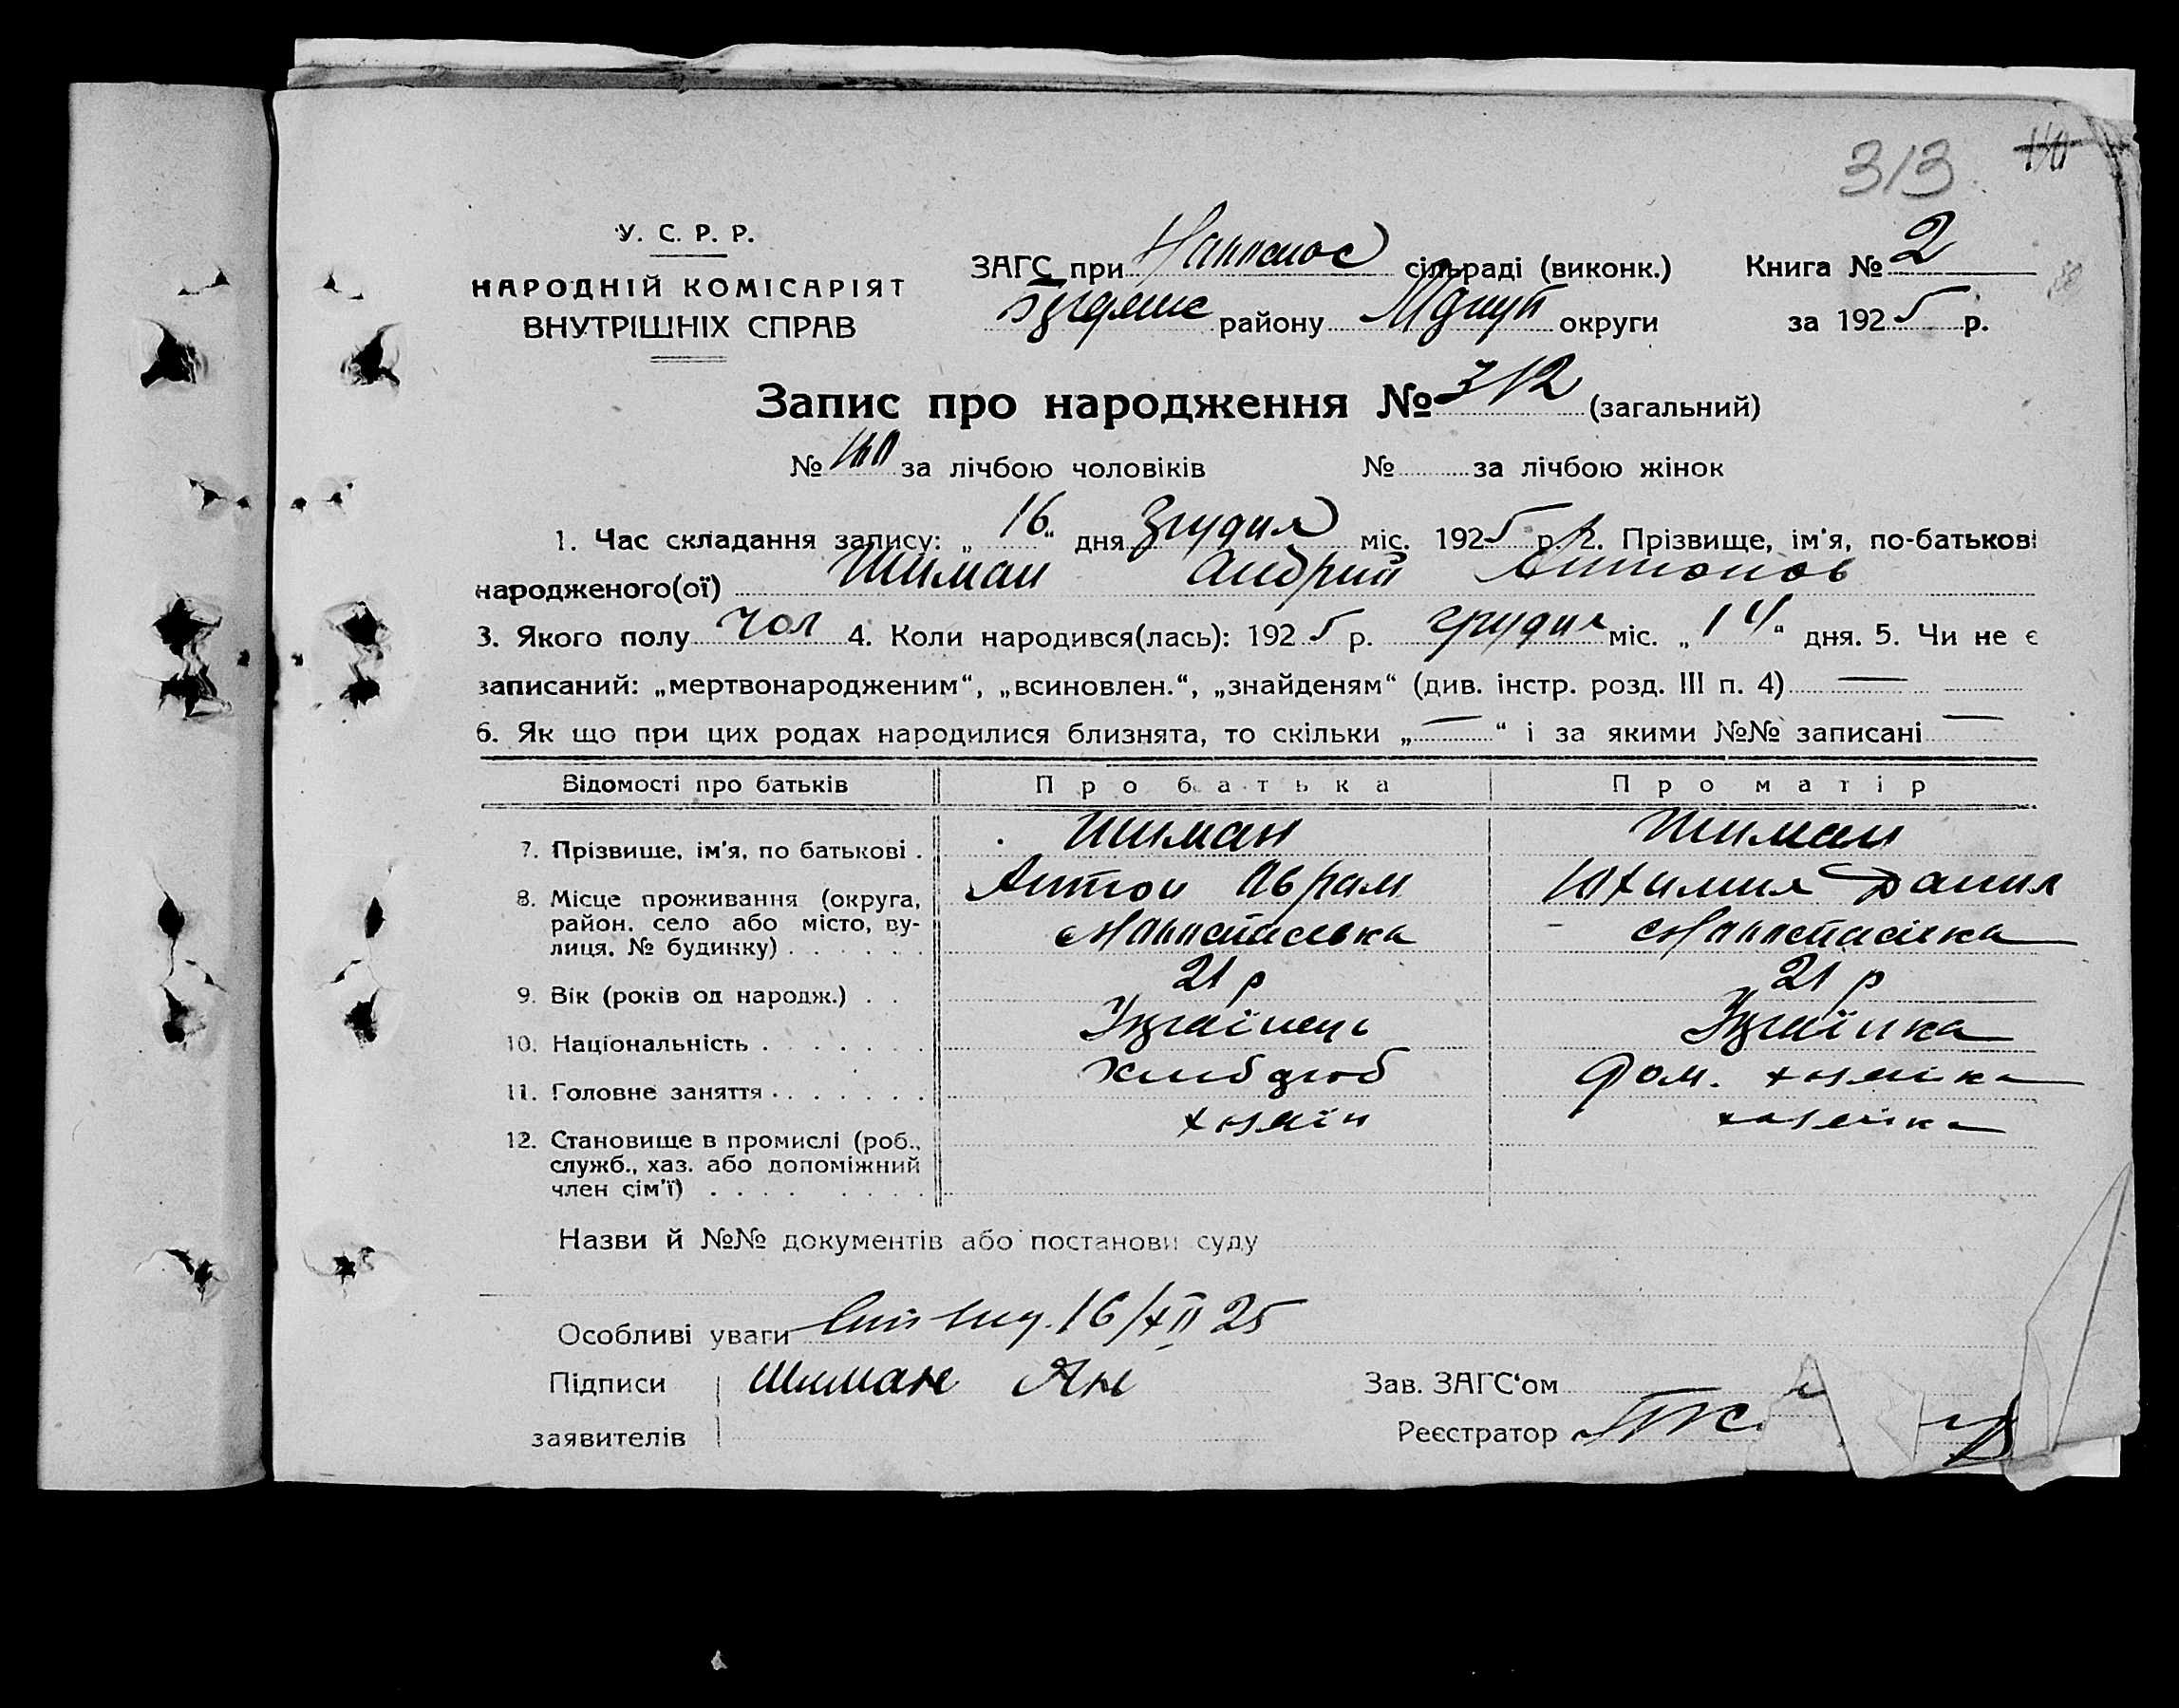 313
У. С. Р. Р.
НАРОДНІЙ КОМІСАРІЯТ
ВНУТРІШНІХ СПРАВ
ЗАГС при сільраді (виконк.) Книга № 2
району округи за 1925 р.
Запис про народження № 312 (загальний)
№ 160 за лічбою чоловіків № за лічбою жінок
1. Час складання запису: „16“ дня Згрудня міс. 1925 р. 2. Прізвище, ім'я, по-батькові
народженого(ої) Шиман Андрий Антонов
3. Якого полу чол 4. Коли народився(лась): 1925 р. грудня міс. „14“ дня. 5. Чи не є
записаний: „мертвонародженим“, „всиновлен.“, „знайденям“ (див. інстр. розд. III п. 4) —
6. Як що при цих родах народилися близнята, то скільки „—“ і за якими №№ записані —
Відомості про батьків Про батька Про матір
7. Прізвище, ім'я, по батькові . Шиман Шиман
8. Місце проживання (округа, Антон Аврам Юхимия Данил
район, село або місто, ву-
лиця, № будинку) . . . . . .
9. Вік (років од народж.) . . 21 р 21 р
10. Національність . . . . . . . Українець Українка
11. Головне заняття . . . . . . . Хлиб дроб Дом. хозяйка
12. Становище в промислі (роб., хозяїн хозяйка
служб., хаз. або допоміжний
член сім'ї) . . . . . . . .
Назви й №№ документів або постанови суду
Особливі уваги 16/XII 25
Підписи Шиман Ян Зав. ЗАГС‘ом
заявителів Реєстратор